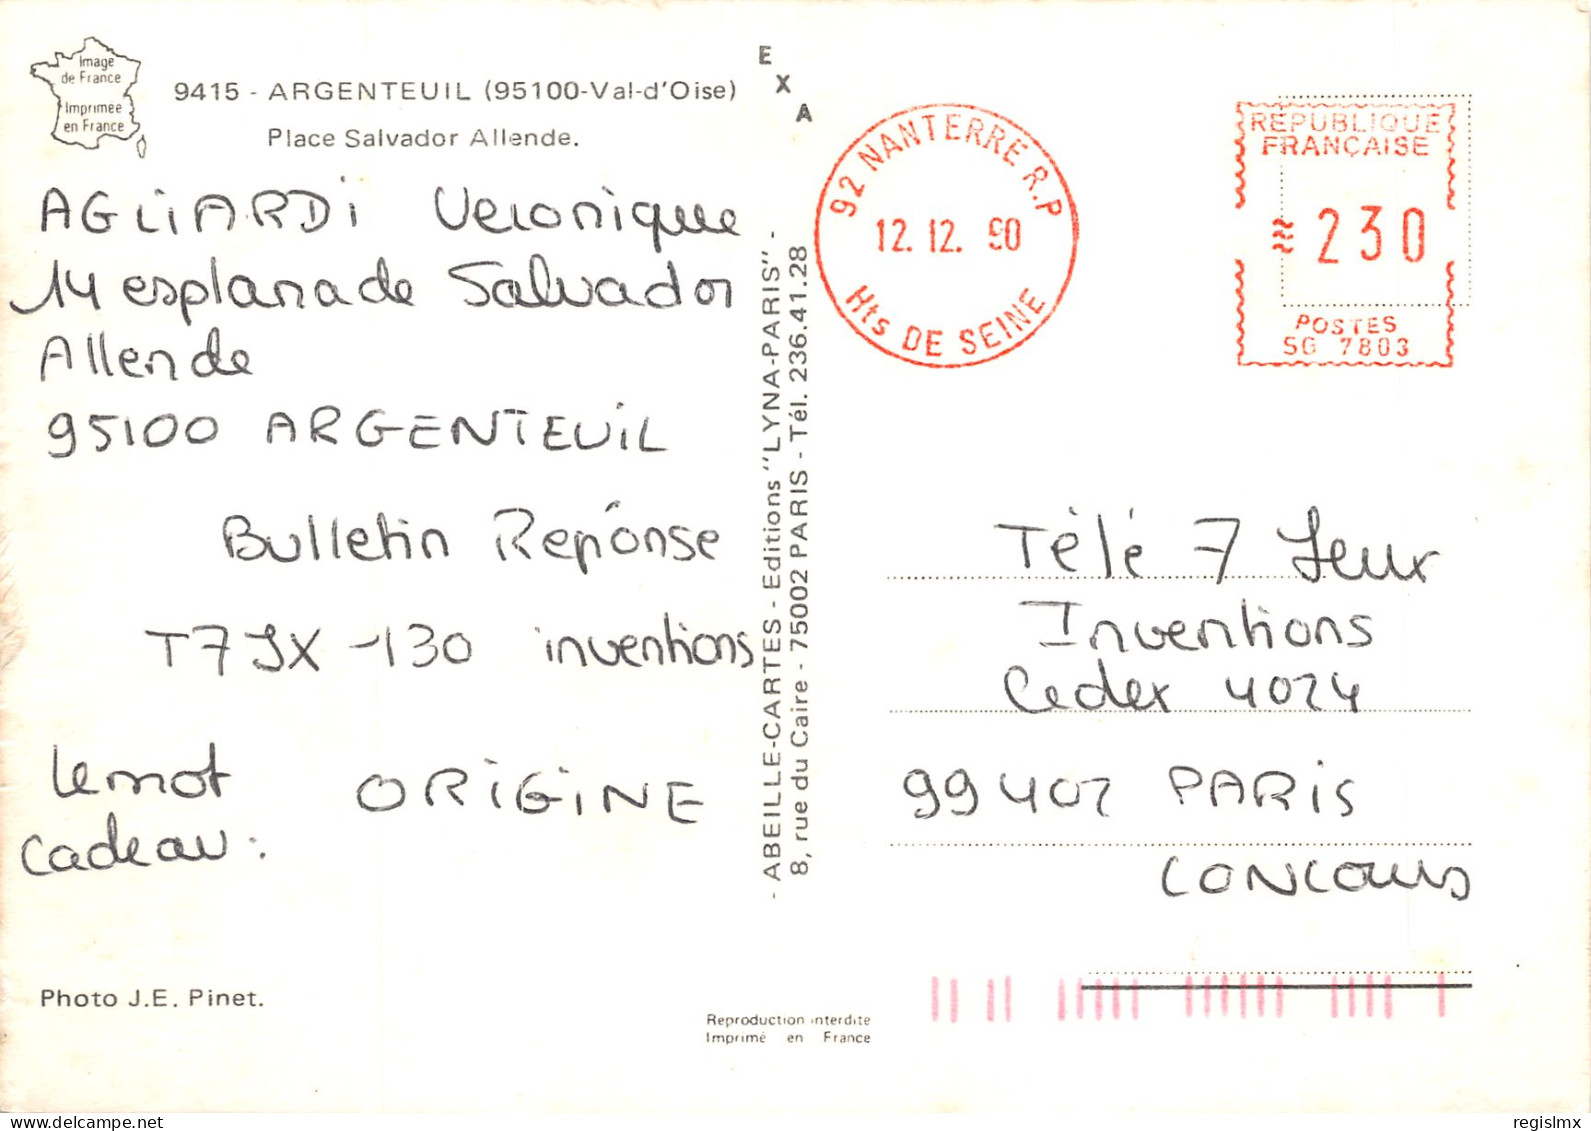 Image
de France
Imprimée
en France
9415 - ARGENTEUIL (95100-Val-d'Oise)
Place Salvador Allende.
AGLIARDI Veronique
14 esplanade Salvador
Allende
95100 ARGENTEUIL
Bulletin Réponse
T7JX -130 inventions
Le mot ORIGINE
cadeau :
Photo J.E. Pinet.
EXA
- ABEILLE-CARTES - Editions "LYNA-PARIS" -
8, rue du Caire - 75002 PARIS - Tél. 236.41.28
Reproduction interdite
Imprimé en France
92 NANTERRE R.P
12. 12. 90
Hts DE SEINE
REPUBLIQUE
FRANÇAISE
230
POSTES
SG 7803
Télé 7 Jeux
Inventions
Cedex 4024
99402 PARIS
CONCOURS
regislmx